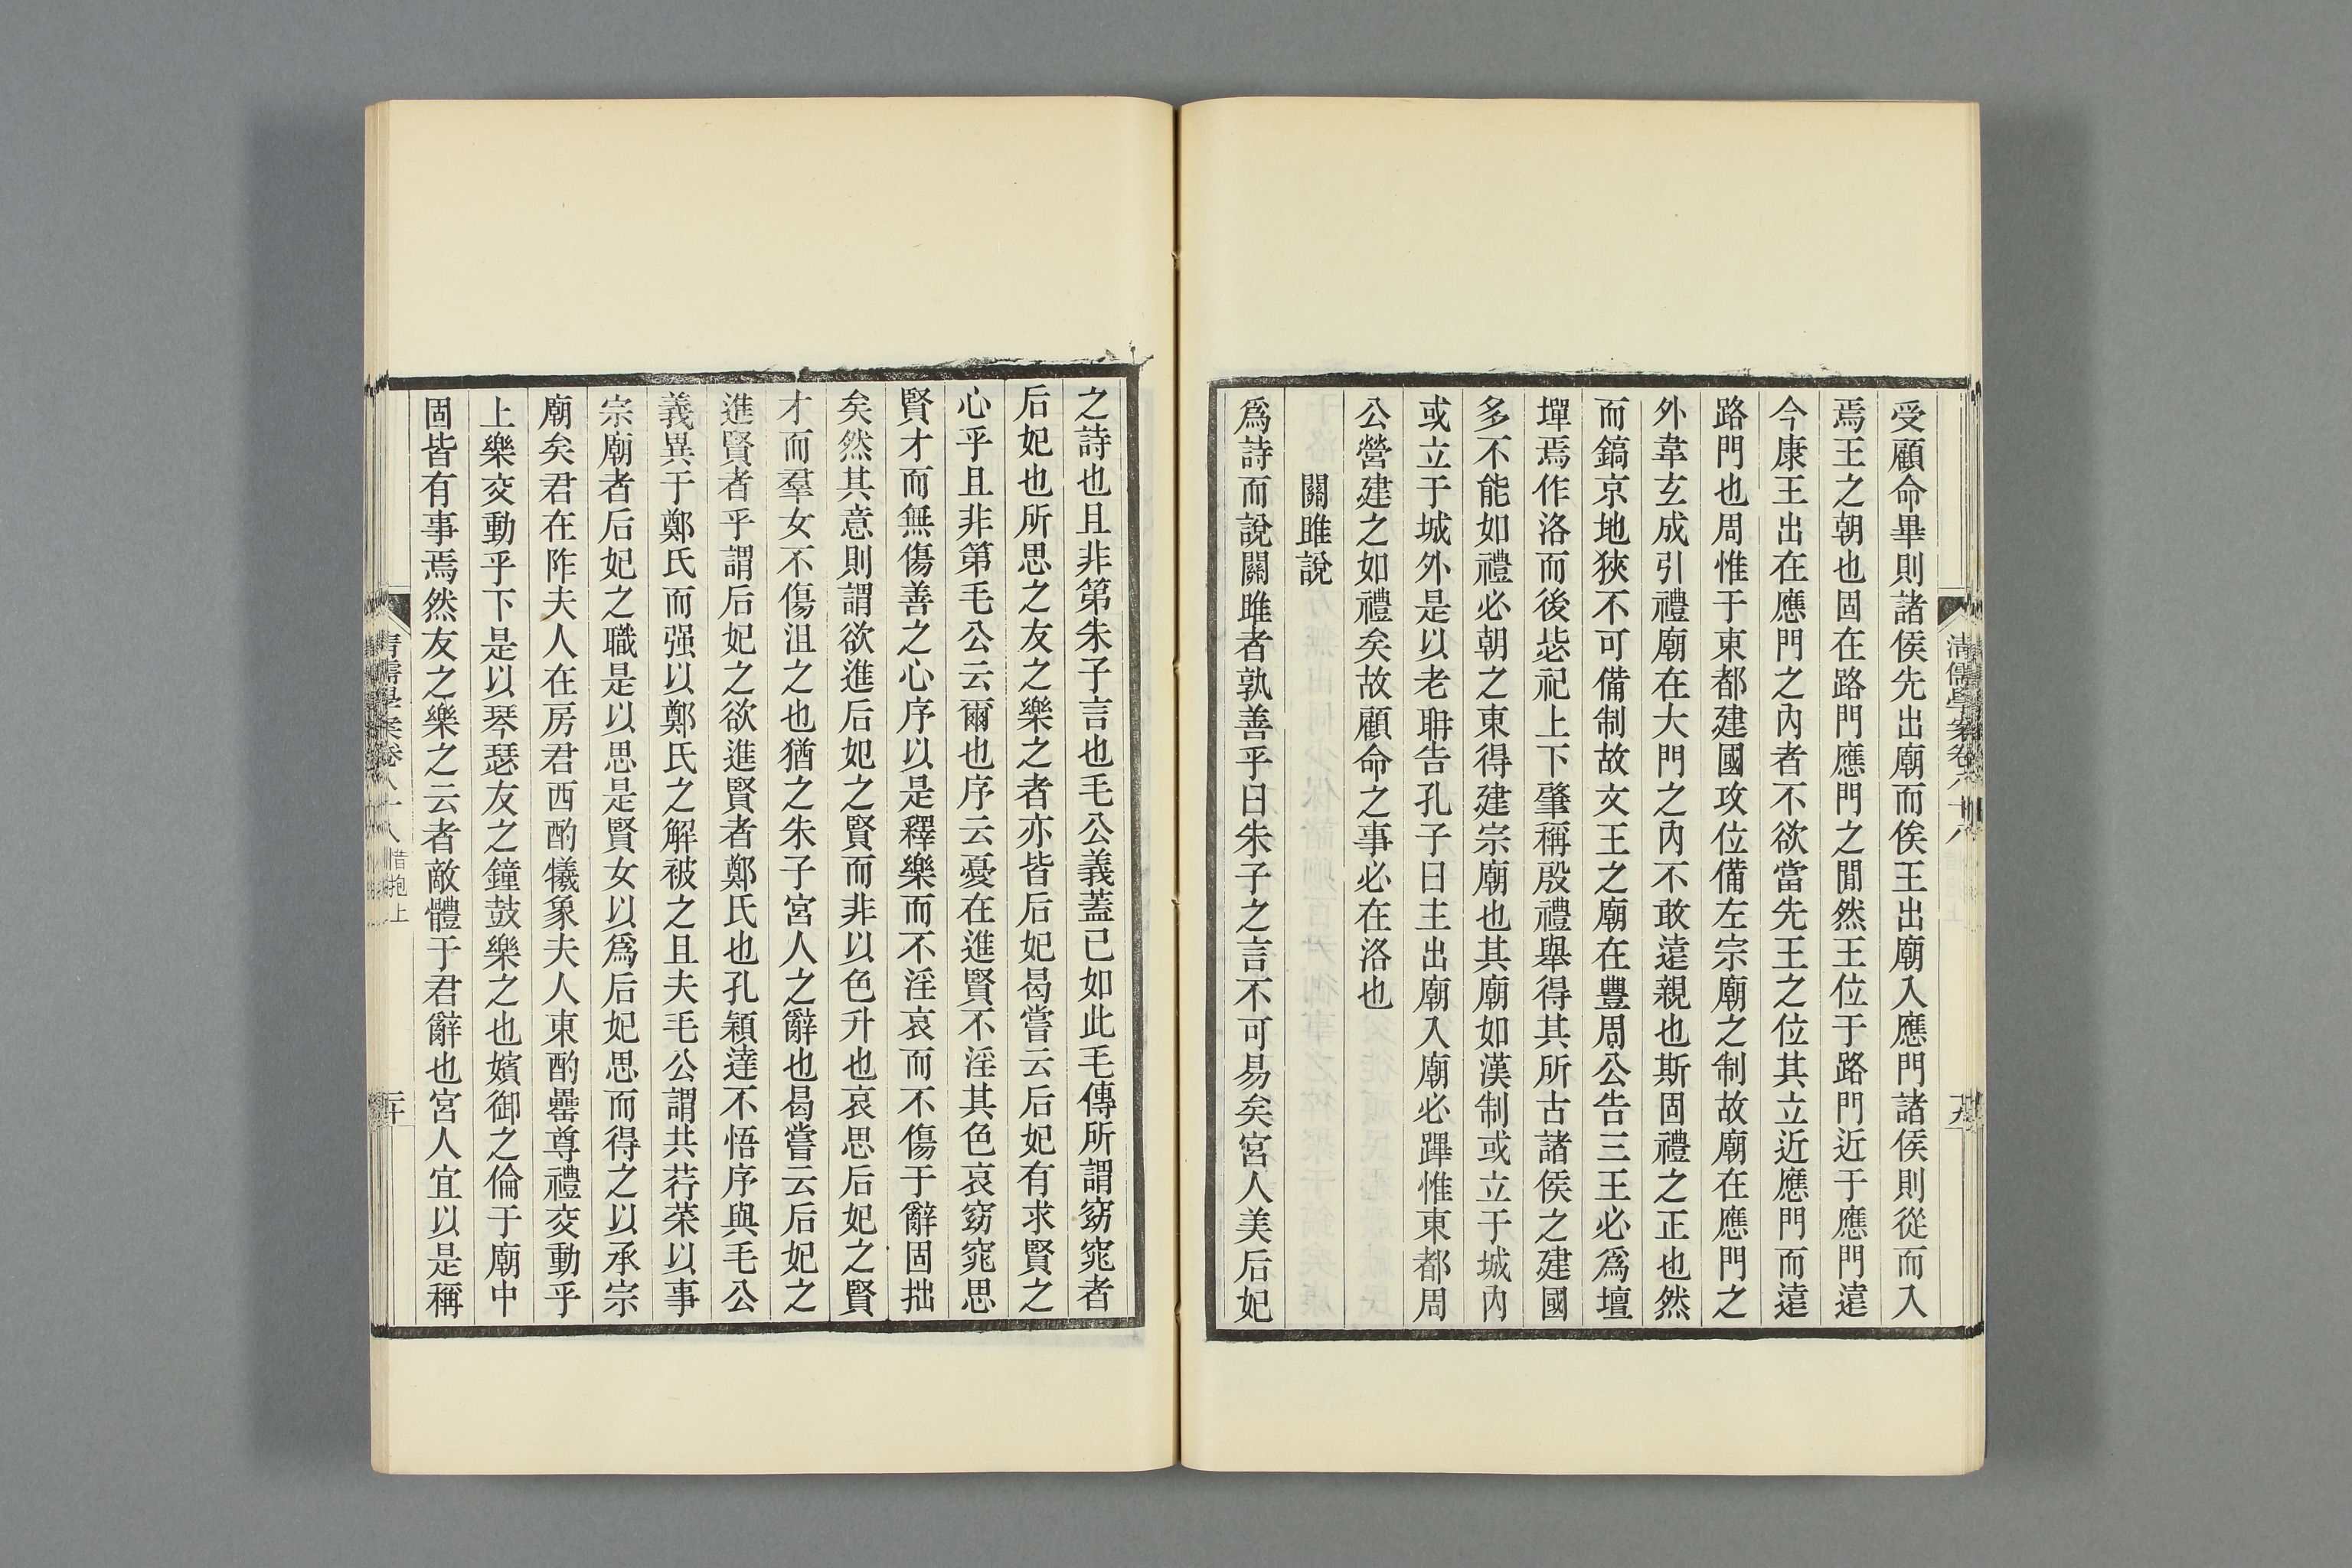 受顧命畢則諸侯先出廟而俟王出廟入應門諸侯則從而入
焉王之朝也固在路門應門之閒然王位于路門近于應門遠
今康王出在應門之內者不欲當先王之位其立近應門而遠
路門也周惟于東都建國攻位備左宗廟之制故廟在應門之
外韋玄成引禮廟在大門之內不敢遠親也斯固禮之正也然
而鎬京地狹不可備制故文王之廟在豐周公告三王必爲壇
墠焉作洛而後毖祀上下肇稱殷禮舉得其所古諸侯之建國
多不能如禮必朝之東得建宗廟也其廟如漢制或立于城內
或立于城外是以老聃告孔子曰主出廟入廟必蹕惟東都周
公營建之如禮矣故顧命之事必在洛也
關雎說
爲詩而說關雎者孰善乎曰朱子之言不可易矣宮人美后妃
清儒學案卷八十八
十九
之詩也且非第朱子言也毛公義蓋已如此毛傳所謂窈窕者
后妃也所思之友之樂之者亦皆后妃曷嘗云后妃有求賢之
心乎且非第毛公云爾也序云憂在進賢不淫其色哀窈窕思
賢才而無傷善之心序以是釋樂而不淫哀而不傷于辭固拙
矣然其意則謂欲進后妃之賢而非以色升也哀思后妃之賢
才而羣女不傷沮之也猶之朱子宮人之辭也曷嘗云后妃之
進賢者乎謂后妃之欲進賢者鄭氏也孔穎達不悟序與毛公
義異于鄭氏而强以鄭氏之解被之且夫毛公謂共荇菜以事
宗廟者后妃之職是以思是賢女以爲后妃思而得之以承宗
廟矣君在阼夫人在房君西酌犧象夫人東酌罍尊禮交動乎
上樂交動乎下是以琴瑟友之鐘鼓樂之也嬪御之倫于廟中
固皆有事焉然友之樂之云者敵體于君辭也宮人宜以是稱
清儒學案卷八十八 惜抱上
二十